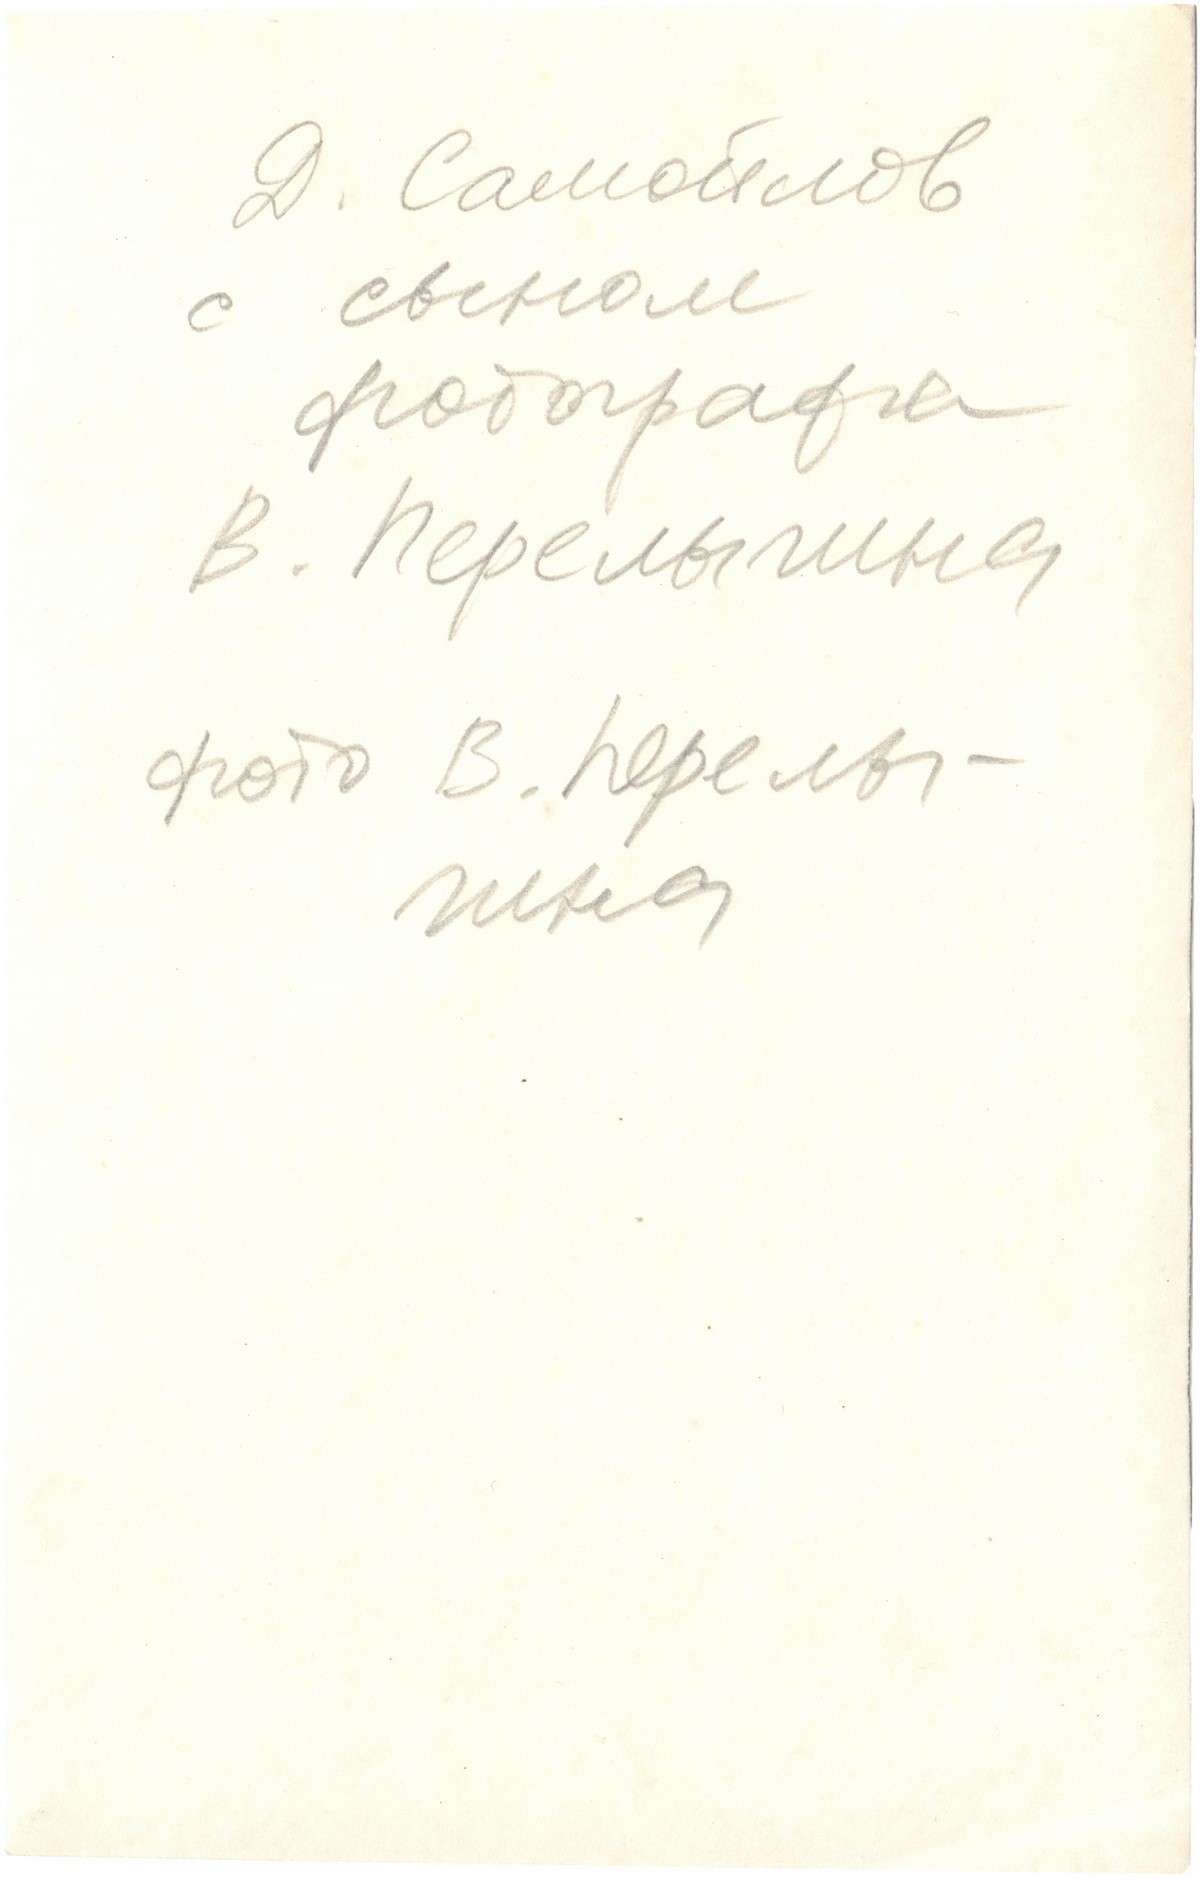 Д. Самойлов
с сыном
фотографа
В. Перелыгина
фото В. Перелы-
гина